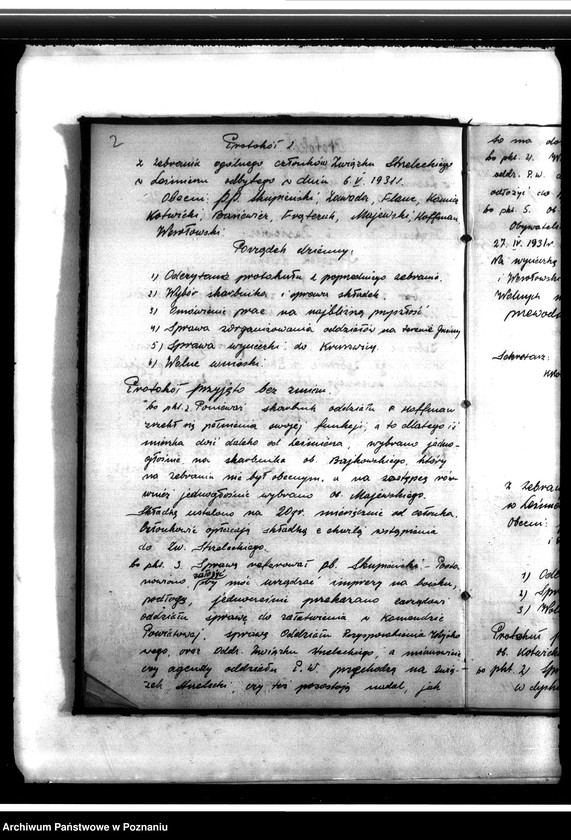 2
Protokół 2.
z zebrania ogólnego członków Związku Strzeleckiego
w odbytego w dniu 6.V.1931r.
Obecni: p.p. Skupieński, Zawada,
Kotwicki, Baniewicz, Frątczak, Majewski, Hoffman
Porządek dzienny:
1) Odczytanie protokułu z poprzedniego zebrania.
2) Wybór skarbnika i sprawa składek.
3) Omówienie prac na najbliższą przyszłość
4) Sprawa zorganizowania oddziałów na terenie gminy
5) Sprawa wycieczki do Kruszwicy.
6) Wolne wnioski.
Protokół przyjęto bez zmian.
Do pkt. 2. Ponieważ skarbnik oddziału p. Hoffman
zrzekł się pełnienia swojej funkcji, a to dlatego iż
mieszka dość daleko od wybrano jedno-
głośnie na skarbnika ob. Bajkowskiego, który
na zebraniu nie był obecnym, a na zastępcę rów-
nież jednogłośnie wybrano ob. Majewskiego.
Składkę ustalono na 20 gr. miesięcznie od członka.
Członkowie opłacają składkę z chwilą wstąpienia
do Zw. Strzeleckiego.
Do pkt. 3. Sprawę referował ob. Skupieński. - Posta-
nowiono móc urządzać imprezy na boisku,
podłogę, jednocześnie przekazano zarządowi
oddziału sprawę do załatwienia w Komendzie
Powiatowej, sprawę Oddziału Przysposobienia Wojsko-
wego, oraz Oddz. Związku Strzeleckiego, a mianowicie
czy agendy oddziału P.W. przechodzą na Zwią-
zek Strzelecki, czy też pozostają nadal, jak
to ma
do pkt. 4.
oddz. P.W.
odłożyć do
do pkt. 5. ob.
Obywatels
27.IV.1931r
Na wycieczkę
i
Wolnych
przewod
Sekretarz:
z zebran
Obecni:
1) Odc
2) Spr
3) Wol
Protokuł p
ob. Kotwick
do pkt. 2 Sp
Archiwum Państwowe w Poznaniu